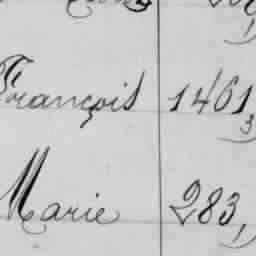 François 1461,
3
Marie 283,